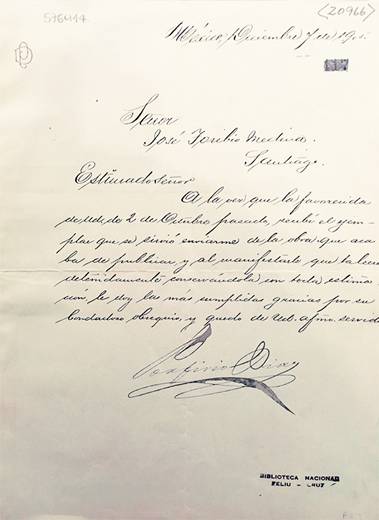 576414
(20966)
México, Diciembre 7 de 19
Señor
José Toribio Medina.
Santiago.
Estimado Señor
A la vez que la favorecida
de Ud. de 2 de Octubre pasado, recibí el ejem-
plar que se sirvió enviarme de la obra que aca
ba de publicar y al manifestarle que la leeré
detenidamente conservándola con toda estima
ción le doy las más cumplidas gracias por su
bondadoso obsequio, y quedo de Ud. afmo. servido
Porfirio Diaz
BIBLIOTECA NACIONAL
FELIU - CRUZ